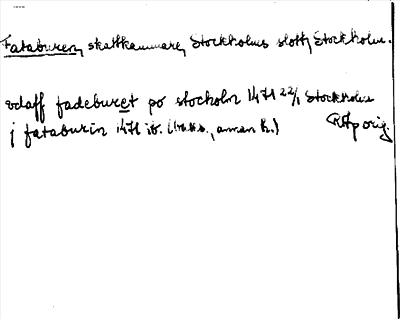 Fataburen, skattkammare, Stockholms slott, Stockholm.
vdaff fadeburet po stocholm 1471 22/1 Stockholm
j faraburin 1471 ib. annan h.) RAp orig.